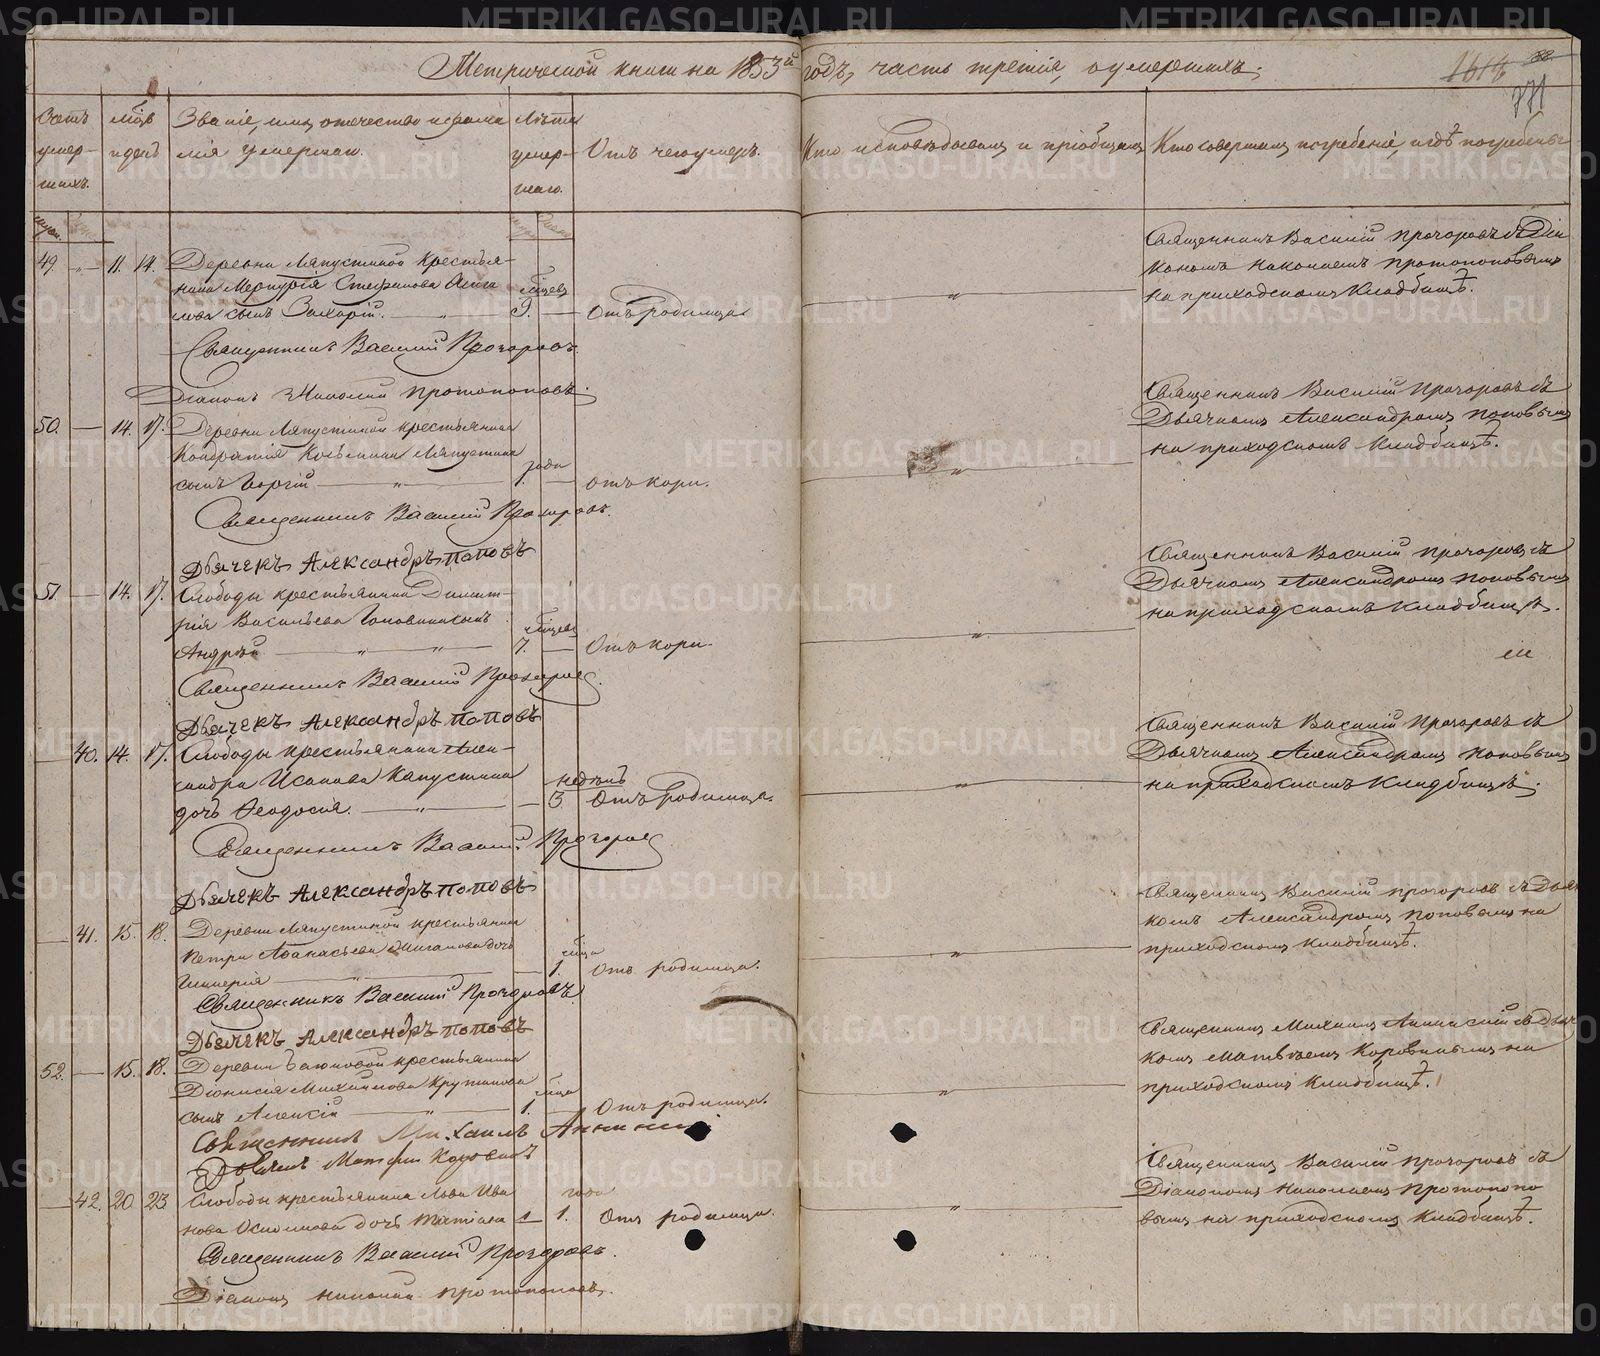 METRIKI.GASO-URAL.RU
Метрической книги на 1853й годъ, часть третія, о умершихъ.
771
Счетъ умер- шихъ.
мцъ и день
Званіе, имя, отчество и фами
лія умершаго.
Лѣта умер- шаго.
Отъ чего умеръ.
Кто исповѣдывалъ и пріобщалъ
Кто совершалъ погребеніе, и гдѣ погребены
49. 11. 14. Деревни Ляпустиной крестья-
нина Меркурія Стефанова
сынъ Захарій. мцевъ 9. Отъ родимца.
Священникъ Василій Прохоровъ съ Діа
кономъ Николаемъ Протопоповымъ
на приходскомъ кладбищѣ.
Священникъ Василій Прохоровъ.
Діаконъ Николай Протопоповъ.
50. 14. 17. Деревни Ляпустиной крестьянина
Кондратія Козьмина Ляпустина
сынъ Георгій года 1. отъ кори.
Священникъ Василій Прохоровъ съ
Дьячкомъ Александромъ Поповымъ
на приходскомъ кладбищѣ.
Священникъ Василій Прохоровъ.
Дьячекъ Александръ Поповъ
51 14. 17. Слободы крестьянина Димит-
рія Васильева сынъ
Андрей мцевъ 7. Отъ кори.
Священникъ Василій Прохоровъ съ
Дьячкомъ Александромъ Поповымъ
на приходскомъ кладбищѣ.
Священникъ Василій Прохоровъ.
Дьячекъ Александръ Поповъ
40. 14. 17. Слободы крестьянина Алек-
сандра Исакова Капустина
дочь Феодосія. недѣль 3. Отъ родимца.
Священникъ Василій Прохоровъ съ
Дьячкомъ Александромъ Поповымъ
на приходскомъ кладбищѣ.
Священникъ Василій Прохоровъ
Дьячекъ Александръ Поповъ
41. 15. 18. Деревни Ляпустиной крестьянина
Петра Афанасьева дочь
мца 1. Отъ родимца.
Священникъ Василій Прохоровъ съ Дьяч
комъ Александромъ Поповымъ на
приходскомъ кладбищѣ.
Священникъ Василій Прохоровъ.
Дьячекъ Александръ Поповъ
52. 15. 18. Деревни крестьянина
Діонисія Михайлова Крутикова
сынъ Алексій мца 1. Отъ родимца.
Священникъ Михаилъ съ Дьяч
комъ Матвѣемъ Коровинымъ на
приходскомъ кладбищѣ.
Священникъ Михаилъ
Дьячекъ Матфій Коровинъ
42. 20. 23 Слободы крестьянина Льва Ива
нова дочь Татіана года 1. Отъ родимца.
Священникъ Василій Прохоровъ съ
Діакономъ Николаемъ Протопопо
вымъ на приходскомъ кладбищѣ.
Священникъ Василій Прохоровъ.
Діаконъ Николай Протопоповъ.